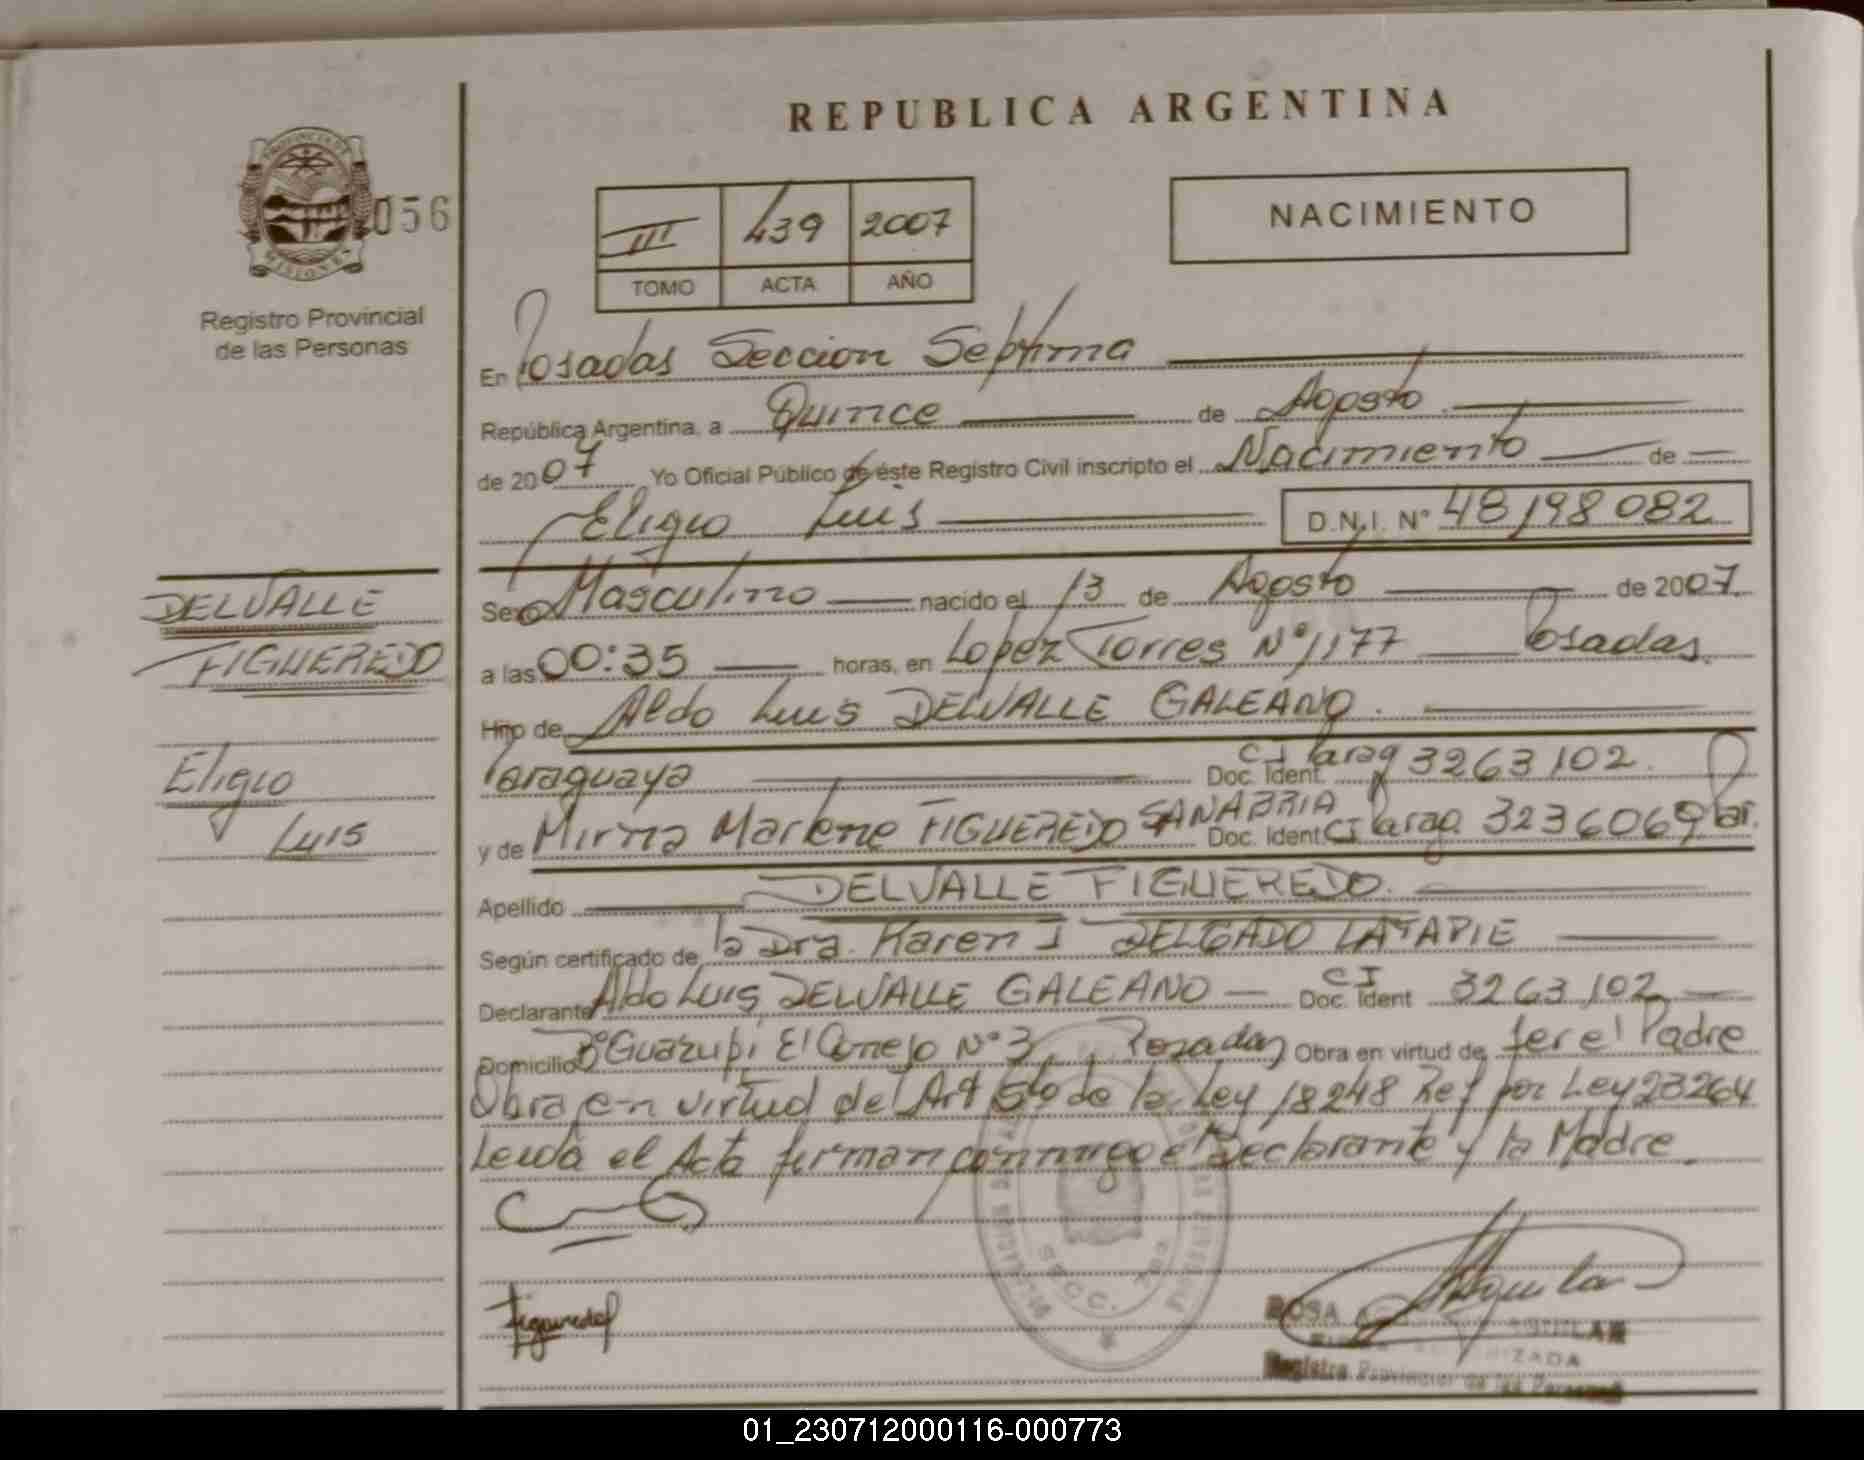 REPUBLICA ARGENTINA
PROVINCIA DE
MISIONES
056
Registro Provincial
de las Personas
III 439 2007
TOMO ACTA AÑO
NACIMIENTO
En Posadas Seccion Septima
República Argentina, a Quince de Agosto
de 2007 Yo Oficial Público de éste Registro Civil inscripto el Nacimiento de
Eligio Luis D.N.I. N° 48198082
DELVALLE
FIGUEREDO
Eligio
Luis
Sexo Masculino nacido el 13 de Agosto de 2007.
a las 00:35 horas, en Lopez Torres N° 1177 Posadas.
Hijo de Aldo Luis DELVALLE GALEANO.
Paraguaya Doc. Ident. CI Parag 3263102.
y de Mirna Marlene FIGUEREDO SANABRIA Doc. Ident. CI Parag. 3236069 Par.
Apellido DELVALLE FIGUEREDO.
Según certificado de la Dra. Karen I DELGADO LATAPIE
Declarante Aldo Luis DELVALLE GALEANO Doc. Ident CI 3263102
Domicilio B° Guazupi, El Conejo N° 3, Posadas Obra en virtud de ser el Padre
Obra en virtud del Art 5to de la Ley 18248 Ref por Ley 23264
Leida el Acta firman conmigo el Declarante y la Madre.
SECC. 7ma
Figueredo
Aguilar
ROSA AGUILAR
Registro Provincial de las Personas
01_230712000116-000773